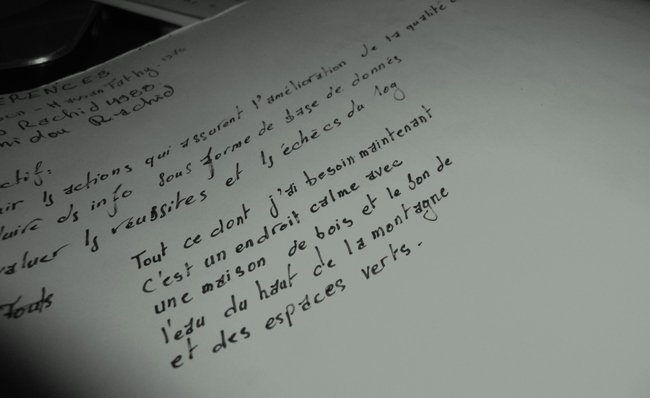 Rachid 4988
Rachid
actions qui assurent l'amélioration de la qualité
ds info sous forme de base de donnés
ls réussites et ls échecs du log
Tout ce dont j'ai besoin maintenant
C'est un endroit calme avec
une maison de bois et le son de
l'eau du haut de la montagne
et des espaces verts.